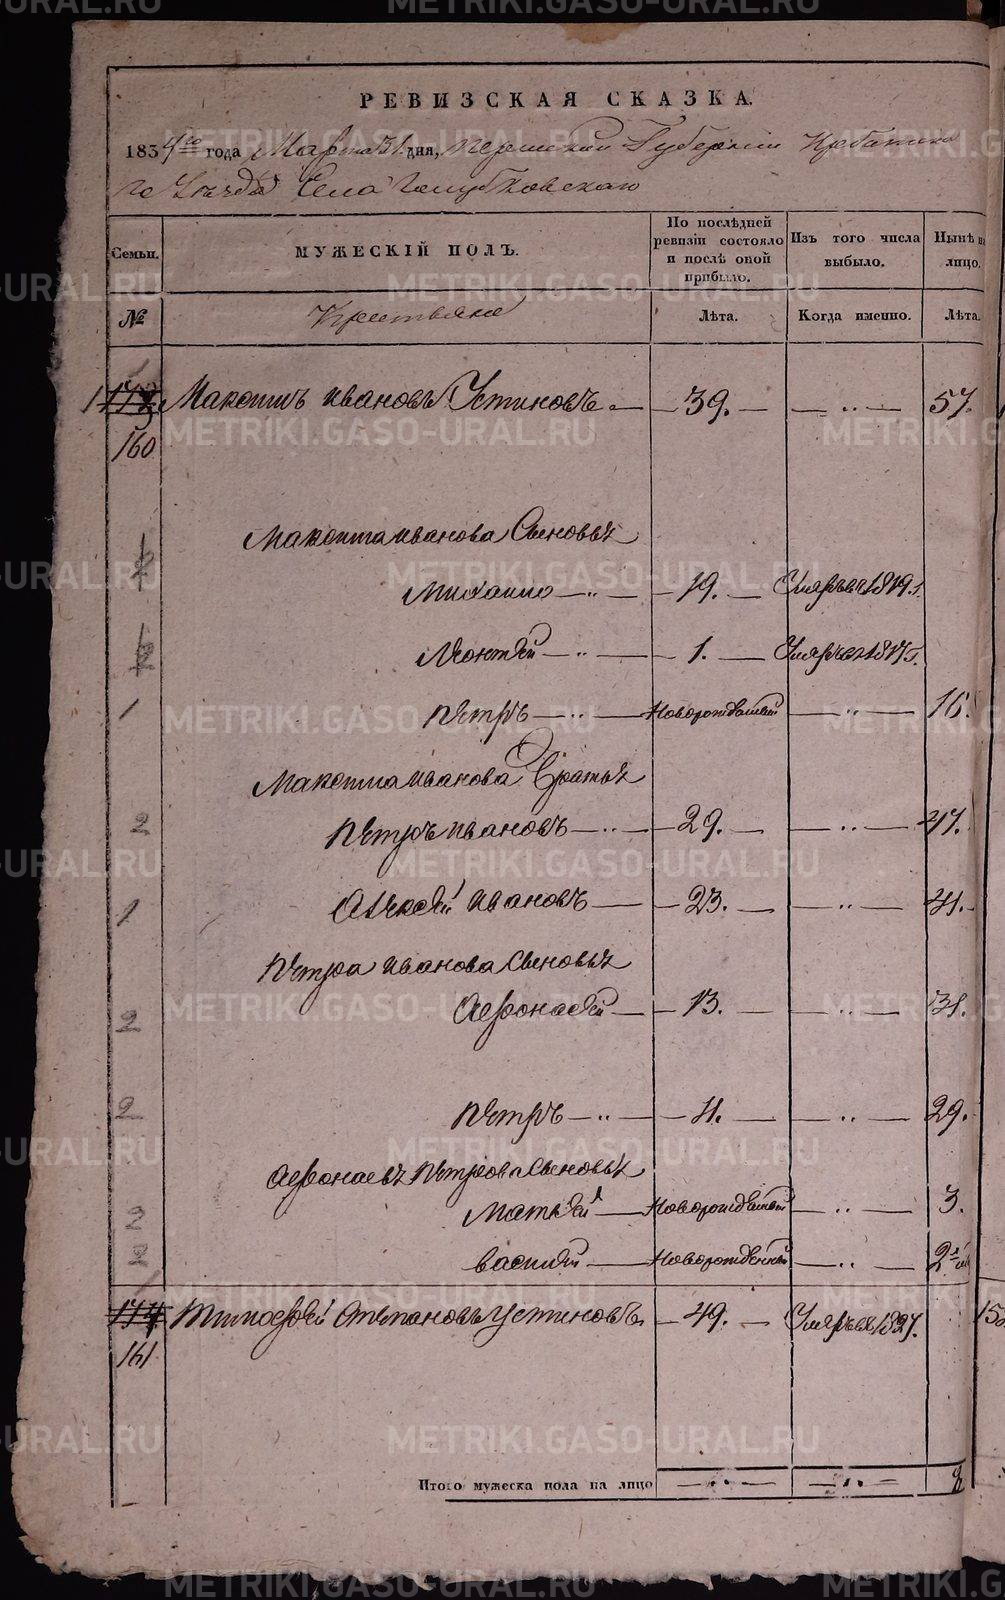 РЕВИЗСКАЯ СКАЗКА.
1834го года Марта 31 дня, Пермской Губернiи Ирбитска
го Уѣзда Села Голубковскаго
Семьи. МУЖЕСКIЙ ПОЛЪ. По послѣдней ревизiи состояло и послѣ оной прибыло. Изъ того числа выбыло. Нынѣ на лицо.
№ Крестьяне Лѣта. Когда именно. Лѣта.
Максимъ Ивановъ Устиновъ 39. 57.
160
Максима Иванова Сыновья
Михаило 19. Умеръ въ 1819.
Леонтей 1. Умеръ въ 1817.
1 Петръ Новорожденный 16.
Максима Иванова Братья
2 Петръ Ивановъ 29. 47.
1 Алексей Ивановъ 23. 41.
Петра Иванова Сыновья
2 Афонасей 13. 31.
2 Петръ 11. 29.
Афонасья Петрова Сыновья
2 Матвей Новорожденный 3.
2 Василей Новорожденный 2
174 Тимофей Степановъ Устиновъ 49. Умеръ въ 1827.
161
Итого мужеска пола на лицо
METRIKI.GASO-URAL.RU